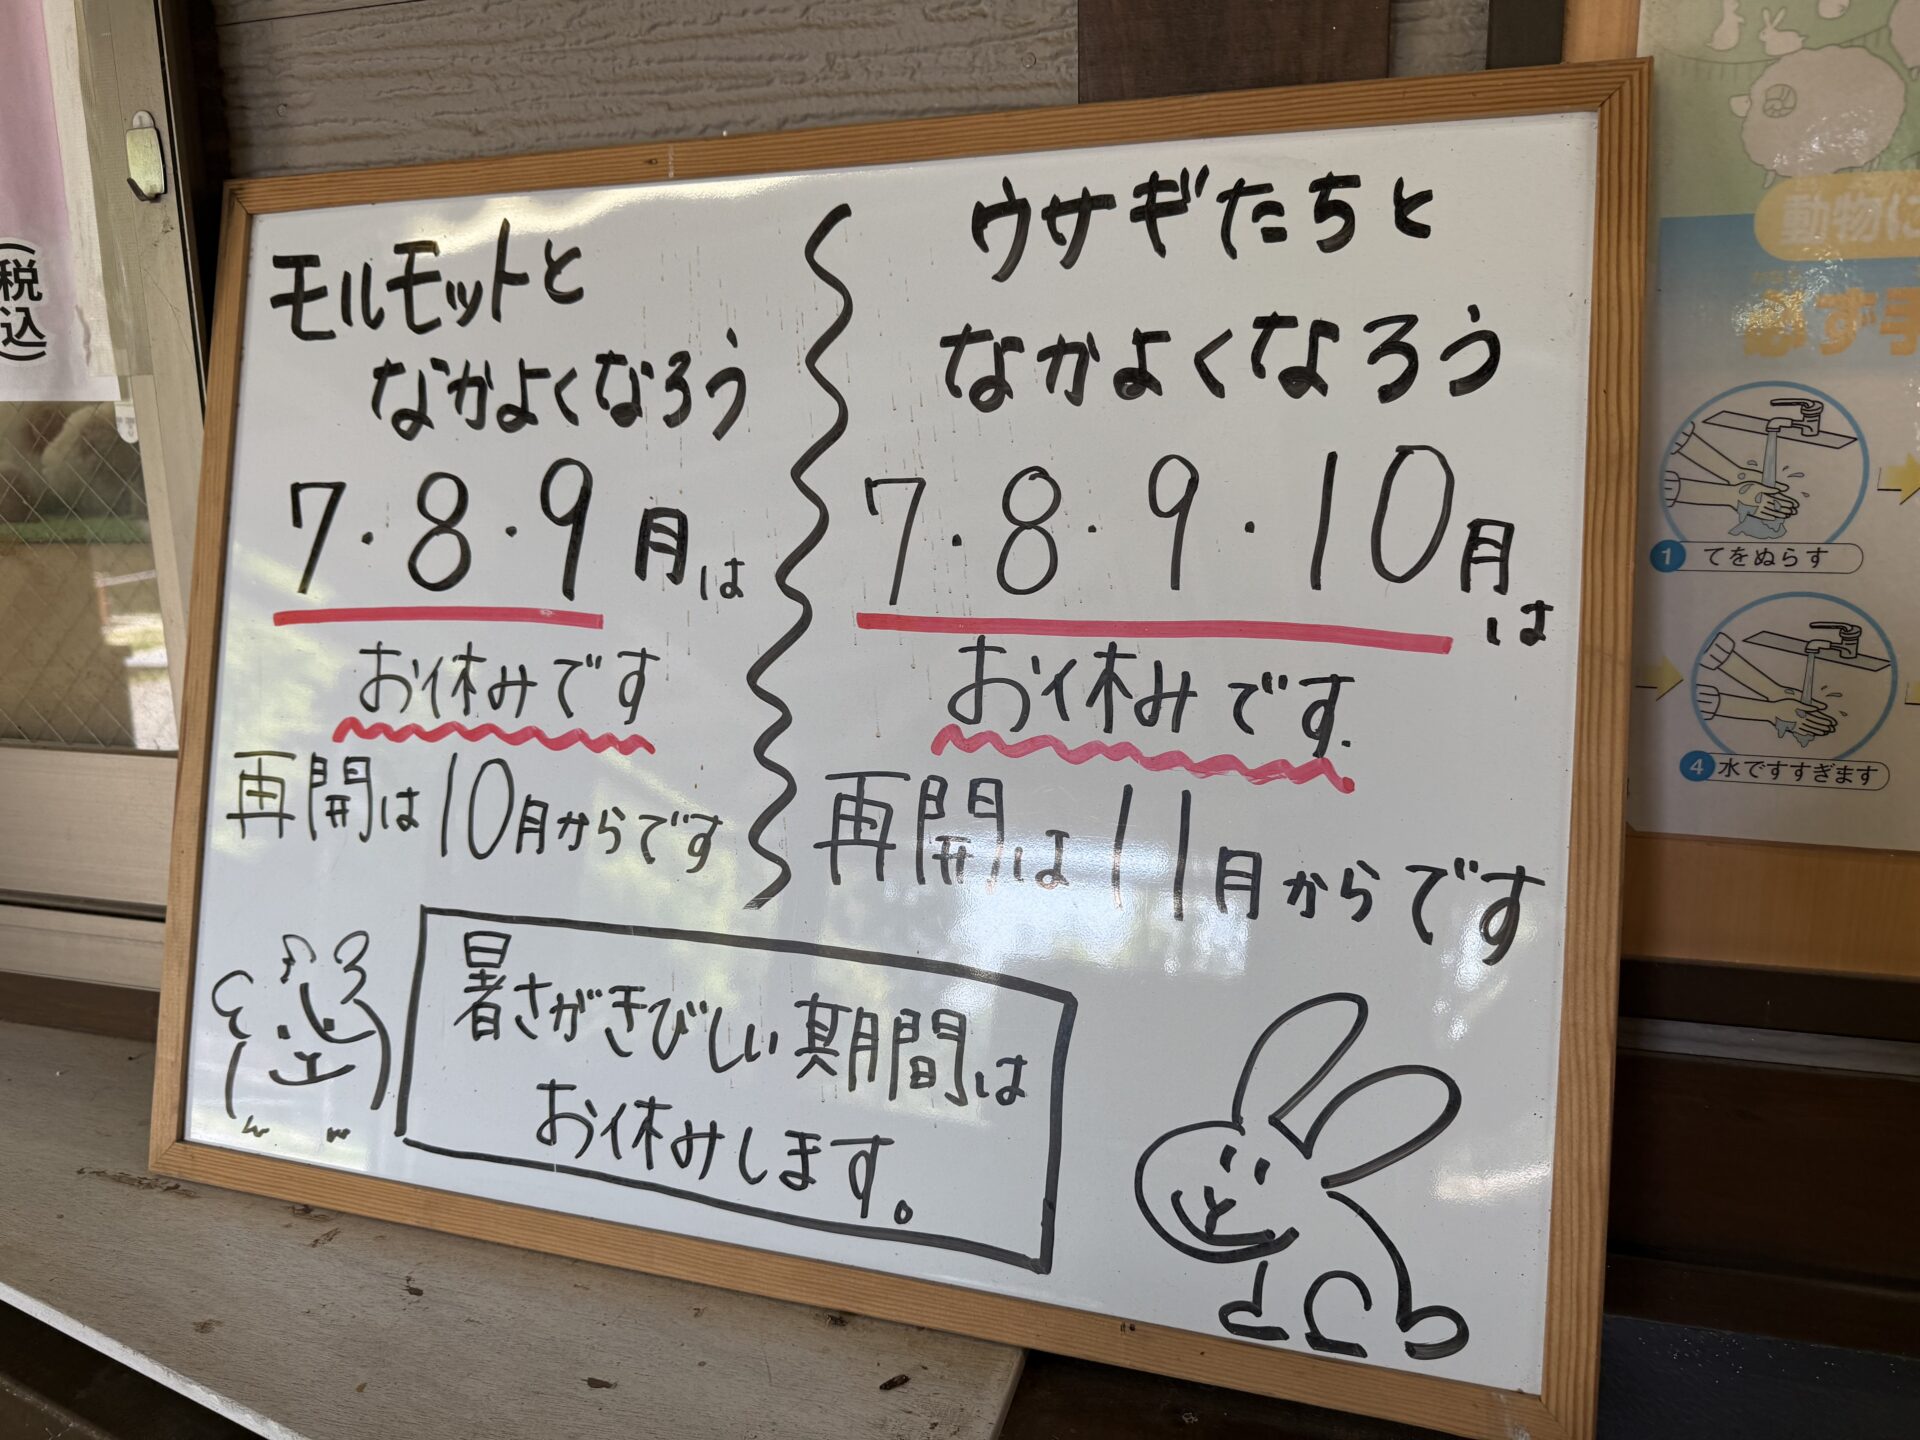 モルモットと
なかよくなろう
7・8・9月は
お休みです
再開は10月からです
ウサギたちと
なかよくなろう
7・8・9・10月は
お休みです.
再開は11月からです
暑さがきびしい期間は
お休みします。
(税込)
動物に
かなら
必ず手
1 てをぬらす
4 水ですすぎます